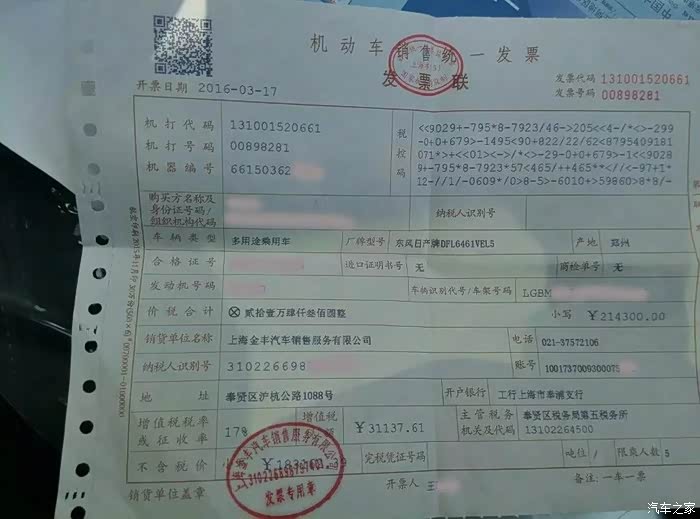 机动车销售统一发票
发票联
开票日期 2016-03-17
发票代码 131001520661
发票号码 00898281
机打代码 131001520661
机打号码 00898281
机器编号 66150362
税控码
<<9029+-795*8-7923/46->205<<4-/*<>-299
-0+0+679>-1495<90+822/22/62<8795409181
071*>+<<01><->/*<>-29-0+0+679>-1<<9028
9+-795*8-7923*57<465/++465**<//<-97+1
12-//1/-0609*/0>8-5>-6010+>59860>8*8/-
购买方名称及身份证号码/组织机构代码
纳税人识别号
车辆类型 多用途乘用车 厂牌型号 东风日产牌DFL6461VEL5 产地 郑州
合格证号 进口证明书号 无 商检单号 无
发动机号码 车辆识别代号/车架号码 LGBM
价税合计 ⊗贰拾壹万肆仟叁佰圆整 小写 ￥214300.00
销货单位名称 上海金丰汽车销售服务有限公司 电话 021-37572106
纳税人识别号 310226698 账号 1001737009300075
地址 奉贤区沪杭公路1088号 开户银行 工行上海市奉浦支行
增值税税率或征收率 17% 增值税 ￥31137.61 主管税务机关及代码 奉贤区税务局第五税务所 13102264500
不含税价 完税凭证号码 吨位 / 限乘人数 5
销货单位盖章 开票人 王 备注:一车一票
上海金丰汽车销售服务有限公司
发票专用章
汽车之家